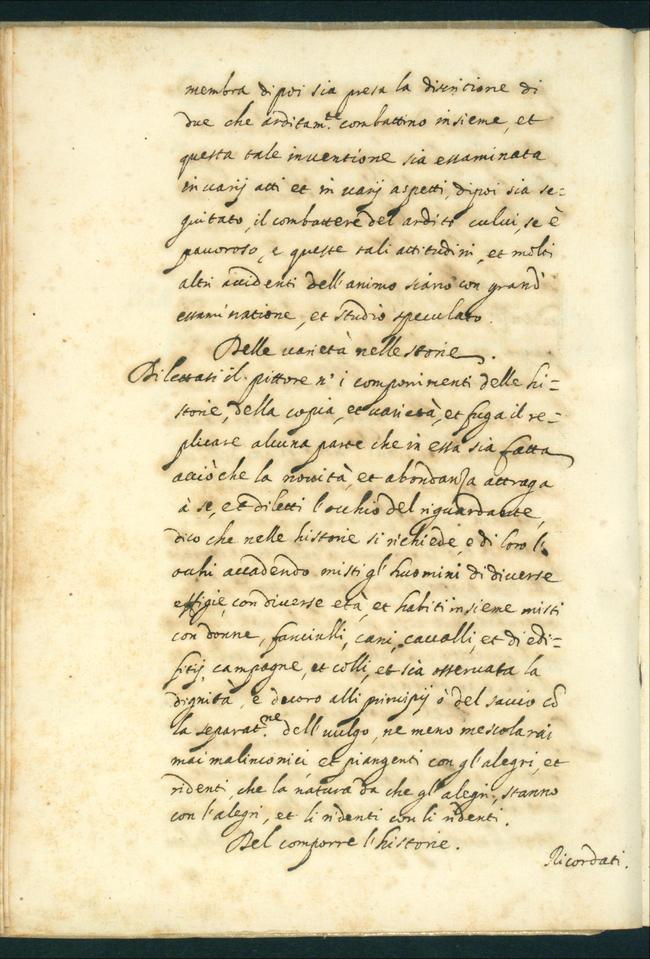 membra dipoi sia presa la discritione di
due che arditam.te combattino insieme, et
questa tale inventione sia essaminata
in varij atti et in varij aspetti, dipoi sia se=
guitato, il combattere del ardito colui, se è
pauroso, e queste tali attitudini, et molti
altri accidenti dell'animo siano con grand
essaminatione, et studio speculato.
Delle varietà nelle storie.
Dilettasi il pittore n'i componimenti delle hi=
storie, della copia, et varietà, et fuga il re=
plicare alcuna parte che in essa sia fatta
acciò che la novità, et abondanza attraga
à se, et diletti l'occhio del riguardante,
dico che nelle historie si richiede, e di loro li
ochi accadendo misti gl'huomini di diverse
effigie, con diverse età, et habiti insieme misti
con donne, fanciulli, cani, cavalli, et di edi=
fitij, campagne, et colli, et sia osservata la
dignità, e decoro alli principij ò del savio cō
la separat.ne dell'vulgo, ne meno mescolarai
mai malinconici et piangenti con gl'alegri, et
ridenti, che la natura da che gl'alegri, stanno
con l'alegri, et li ridenti con li ridenti.
Del comporre l'historie.
Ricordati.